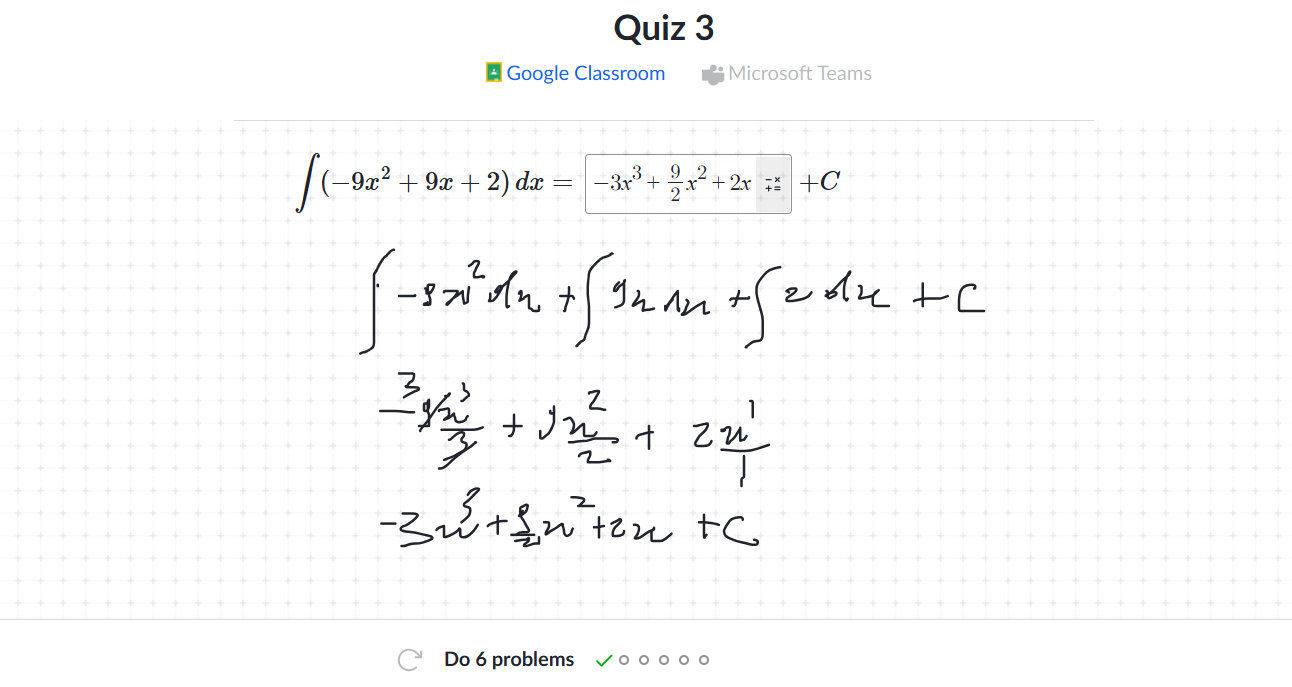 Quiz 3
Google Classroom Microsoft Teams
∫(−9x² + 9x + 2) dx = −3x³ + 9/2 x² + 2x +C
∫ −9x² dx + ∫ 9x dx + ∫ 2 dx + C
−³9x³/3 + 9x²/2 + 2x¹/1
−3x³ + 9/2 x² + 2x + C
Do 6 problems